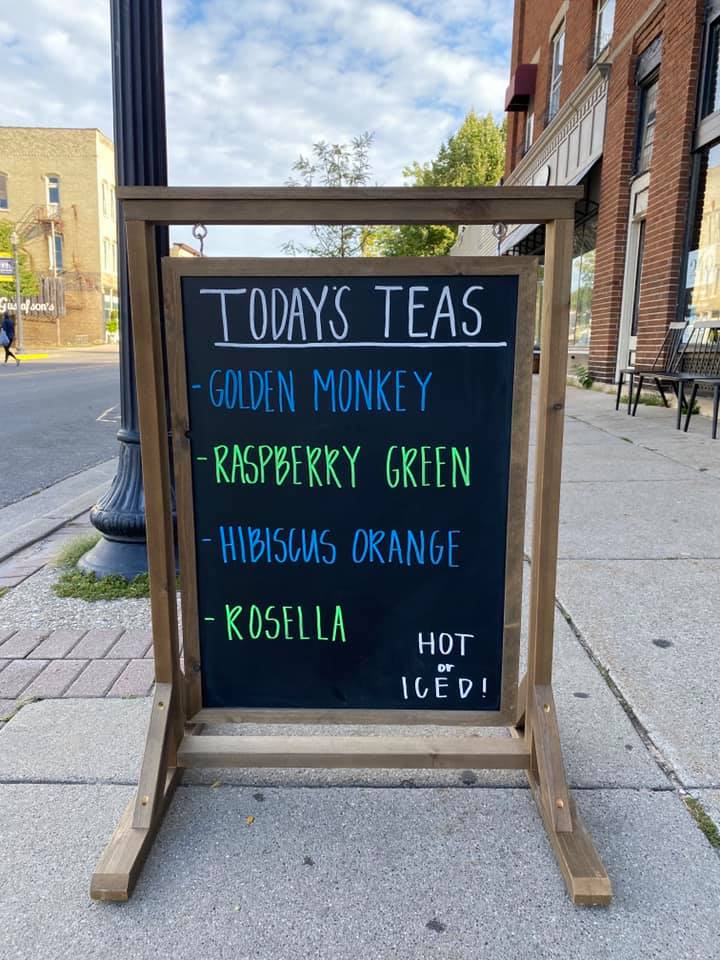 TODAY'S TEAS
- GOLDEN MONKEY
- RASPBERRY GREEN
- HIBISCUS ORANGE
- ROSELLA
HOT
or
ICED!
Gustafson's